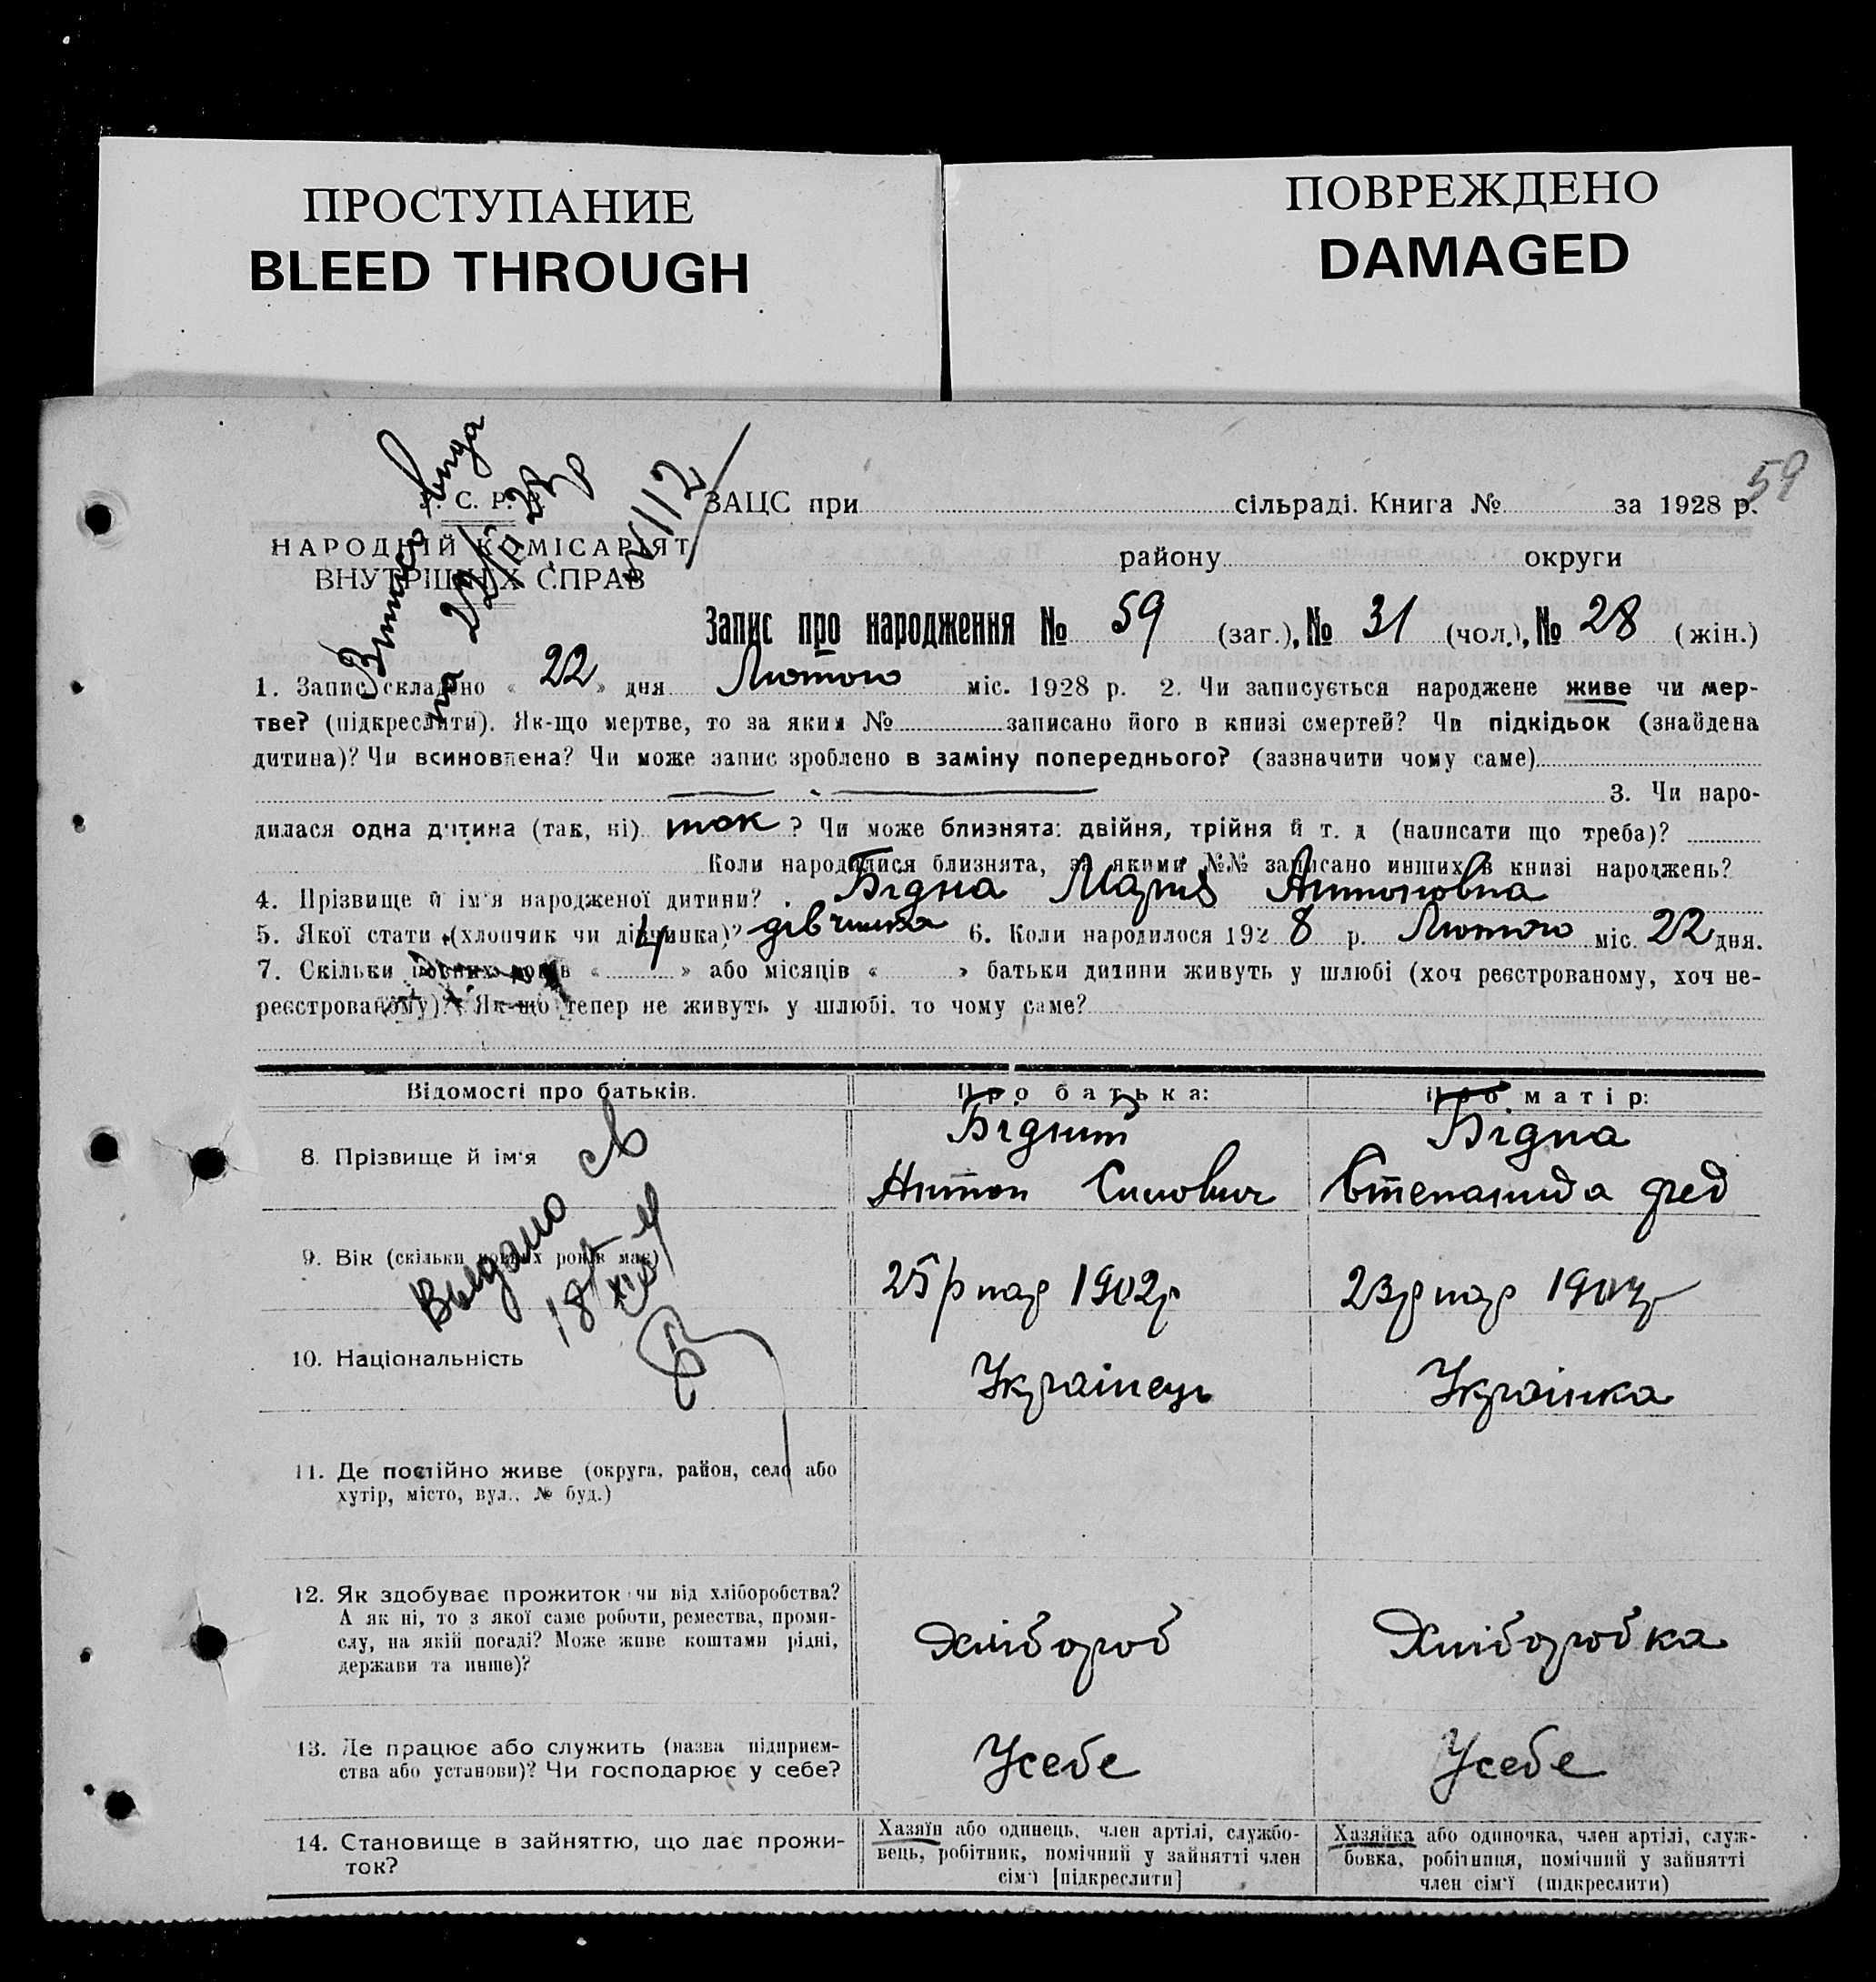 ПРОСТУПАНИЕ
BLEED THROUGH
ПОВРЕЖДЕНО
DAMAGED
59
С. Р. Р.
НАРОДНІЙ КОМІСАРІЯТ
ВНУТРІШНІХ СПРАВ
ЗАЦС при сільраді. Книга № за 1928 р.
району округи
Запис про народження № 59 (заг.), № 31 (чол.), № 28 (жін.)
1. Запис складено « 22 » дня Лютого міс. 1928 р. 2. Чи записується народжене живе чи мер-
тве? (підкреслити). Як-що мертве, то за яким № записано його в книзі смертей? Чи підкідьок (знайдена
дитина)? Чи всиновлена? Чи може запис зроблено в заміну попереднього? (зазначити чому саме)
3. Чи наро-
дилася одна дитина (так, ні) так ? Чи може близнята: двійня, трійня й т. д (написати що треба)?
Коли народилися близнята, за якими №№ записано инших в книзі народжень?
4. Прізвище й ім'я народженої дитини? Бідна Марія Антоновна
5. Якої стати (хлопчик чи дівчинка)? дівчинка 6. Коли народилося 192 8 р. Лютого міс. 22 дня.
7. Скільки повних років « 4 » або місяців « » батьки дитини живуть у шлюбі (хоч реєстрованому, хоч не-
реєстрованому)? Як-що тепер не живуть у шлюбі, то чому саме?
Відомості про батьків.
Про батька:
Про матір:
8. Прізвище й ім'я
Бідний
Антон
Бідна
Степанида Фед
Выдано св
18
9. Вік (скільки повних років має)
25 р нар 1902р
23р нар
10. Національність
Українець
Українка
11. Де постійно живе (округа, район, село або
хутір, місто, вул., № буд.)
12. Як здобуває прожиток чи від хліборобства?
А як ні, то з якої саме роботи, ремества, проми-
слу, на якій посаді? Може живе коштами рідні,
держави та инше)?
Хлібороб
Хліборобка
13. Де працює або служить (назва підприєм-
ства або установи)? Чи господарює у себе?
Усебе
Усебе
14. Становище в зайняттю, що дає прожи-
ток?
Хазяїн або одинець, член артілі, службо-
вець, робітник, помічний у зайнятті член
сім'ї [підкреслити]
Хазяйка або одиночка, член артілі, служ-
бовка, робітниця, помічний у зайнятті
член сім'ї (підкреслити)